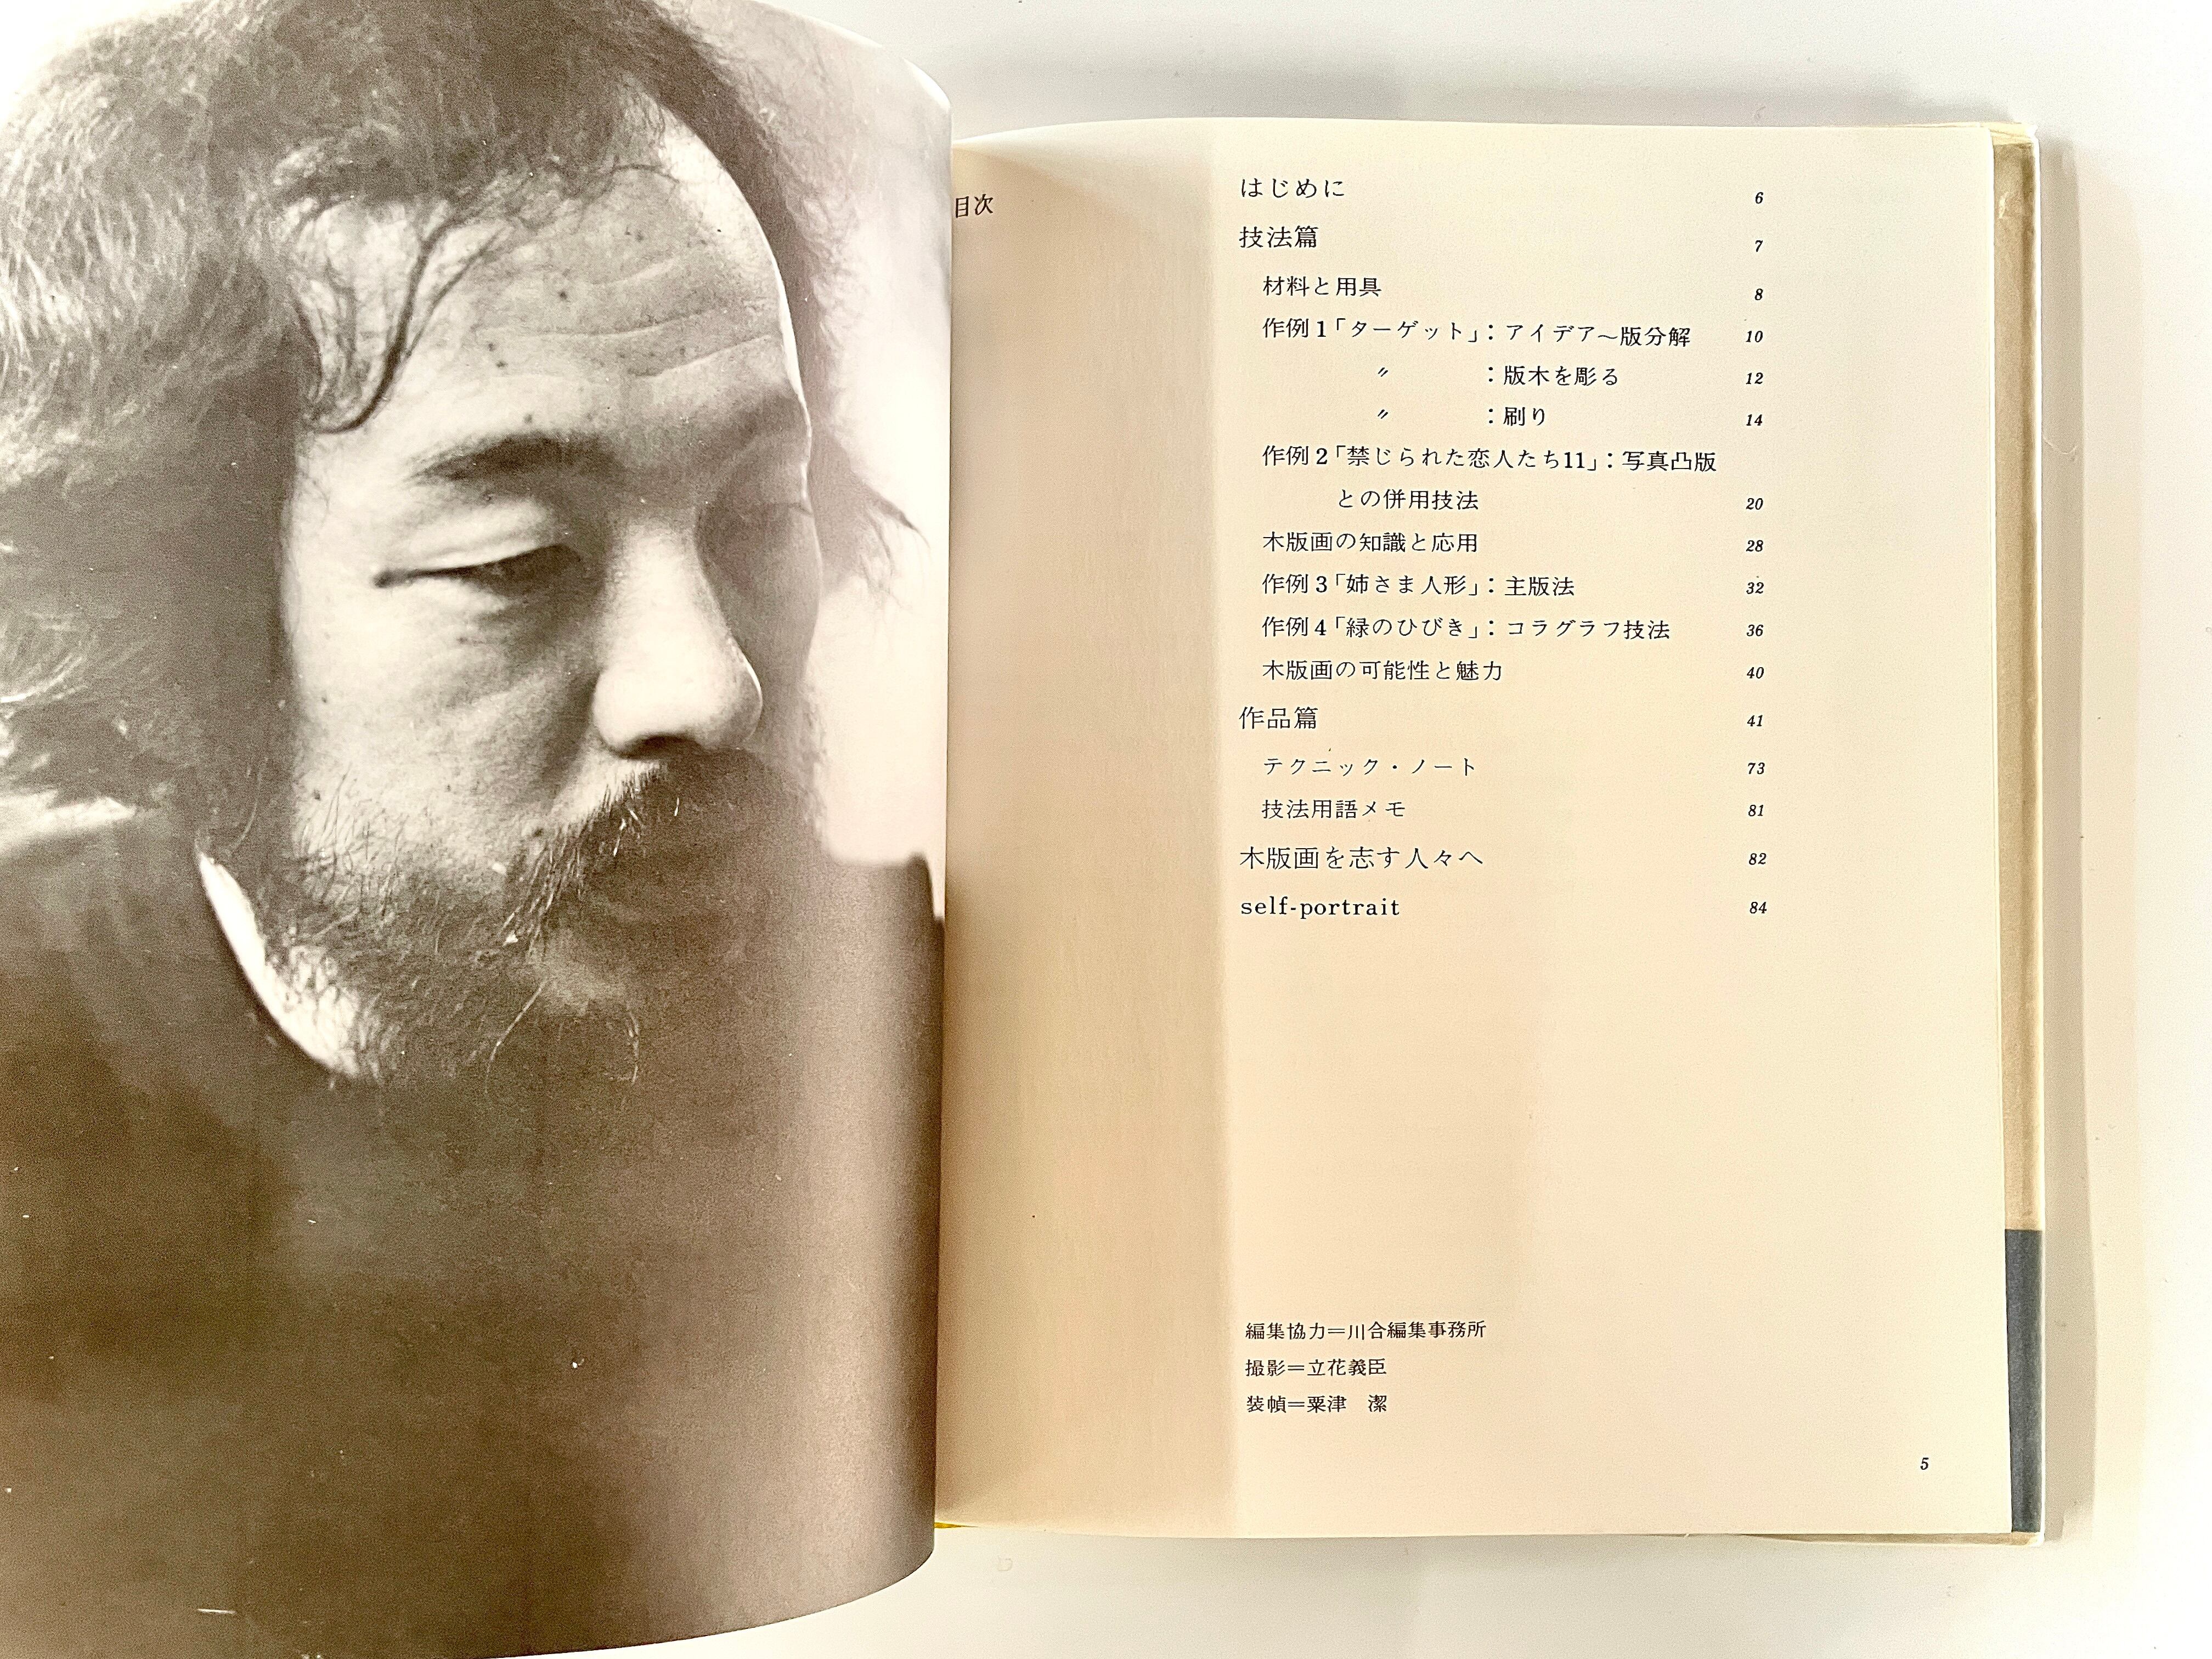 目次
はじめに 6
技法篇 7
材料と用具 8
作例1「ターゲット」：アイデア〜版分解 10
〃 ：版木を彫る 12
〃 ：刷り 14
作例2「禁じられた恋人たち11」：写真凸版
との併用技法 20
木版画の知識と応用 28
作例3「姉さま人形」：主版法 32
作例4「緑のひびき」：コラグラフ技法 36
木版画の可能性と魅力 40
作品篇 41
テクニック・ノート 73
技法用語メモ 81
木版画を志す人々へ 82
self-portrait 84
編集協力＝川合編集事務所
撮影＝立花義臣
装幀＝粟津　潔
5